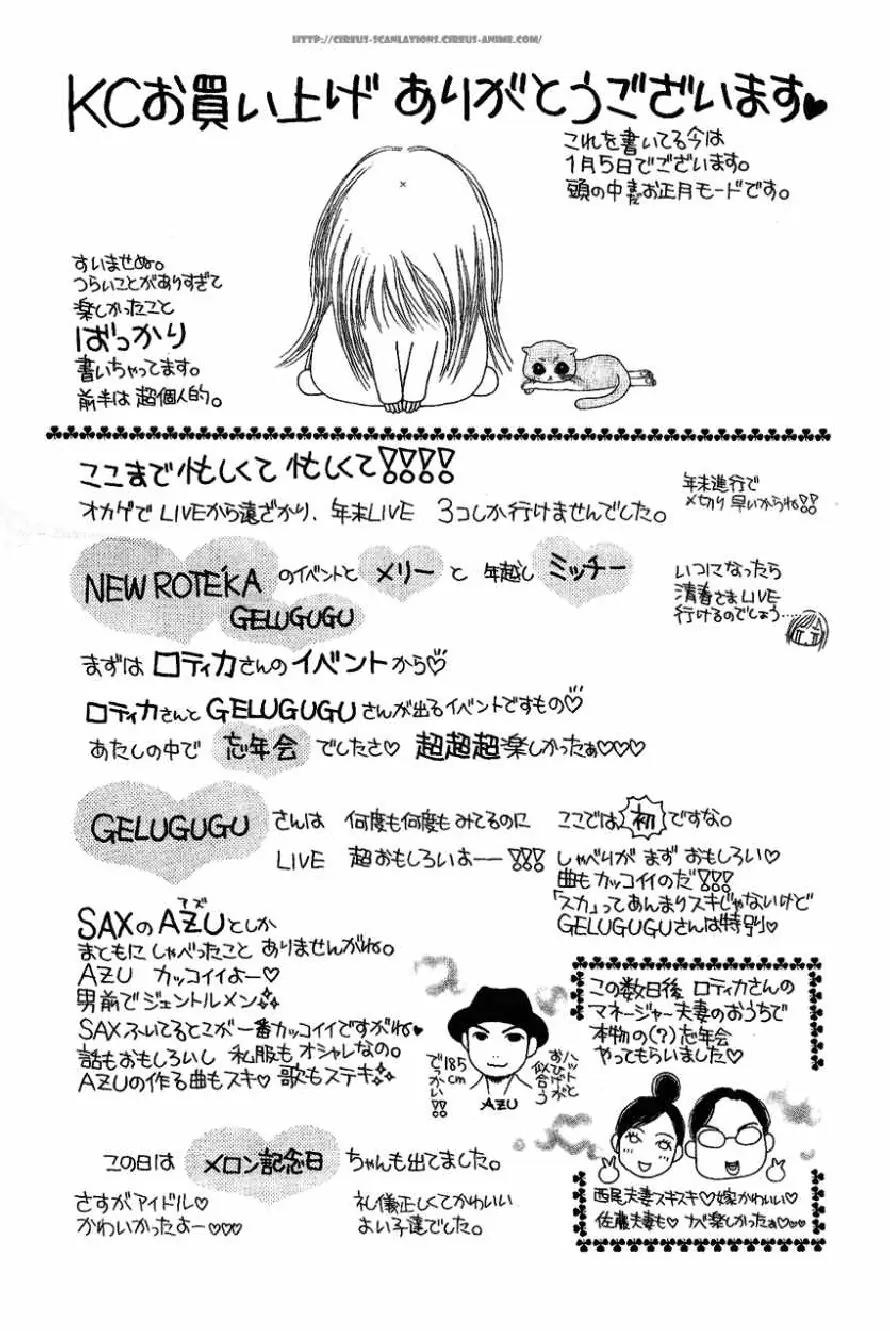 HTTP://CIRRUS-SCANLATIONS.CIRRUS-ANIME.COM/
KCお買い上げ ありがとうございます♥
これを書いてる今は
1月5日でございます。
頭の中まだお正月モードです。
すいませぬ。
つらいことがありすぎて
楽しかったこと
ばっかり
書いちゃってます。
前半は 超個人的。
ここまで忙しくて 忙しくて!!!!
オカゲでLIVEから遠ざかり、年末LIVE 3コしか行けませんでした。
年末進行で
〆切り 早いからね!!
NEW ROTE'KA のイベントと メリー と 年越し ミッチー
GELUGUGU
いつになったら
清春さまLIVE
行けるのでしょう……
まずは ロティカさんのイベントから♡
ロティカさんと GELUGUGUさんが出るイベントですもの♡
あたしの中で 忘年会 でしたさ♡ 超超超楽しかったぁ♡♡♡
GELUGUGU さんは 何度も何度もみてるのに
LIVE 超おもしろいよー!!!
ここでは 初 ですな。
しゃべりが まず おもしろい♡
曲もカッコイイのだ!!!
「スカ」ってあんまりスキじゃないけど
GELUGUGUさんは特別♡
アズ
SAXのAZUとしか
まともに しゃべったこと ありませんがね。
AZU カッコイイよー♡
男前でジェントルメン
SAXふいてるとこが一番カッコイイですがね♥
話もおもしろいし 私服も オシャレなの。
AZUの作る曲もスキ♡ 歌もステキ
185cm
でっかい!!
ハットと
おひげが
似合う
AZU
この数日後 ロティカさんの
マネージャー夫妻のおうちで
本物の(?)忘年会
やってもらいました♡
西尾夫妻スキスキ♡嫁かわいい♡
佐藤夫妻も♡ ナベ楽しかったぁ♡♡♡
この日は メロン記念日 ちゃんも出てました。
さすがアイドル♡
かわいかったよー♡♡♡
礼儀正しくてかわいい
よい子達でした。